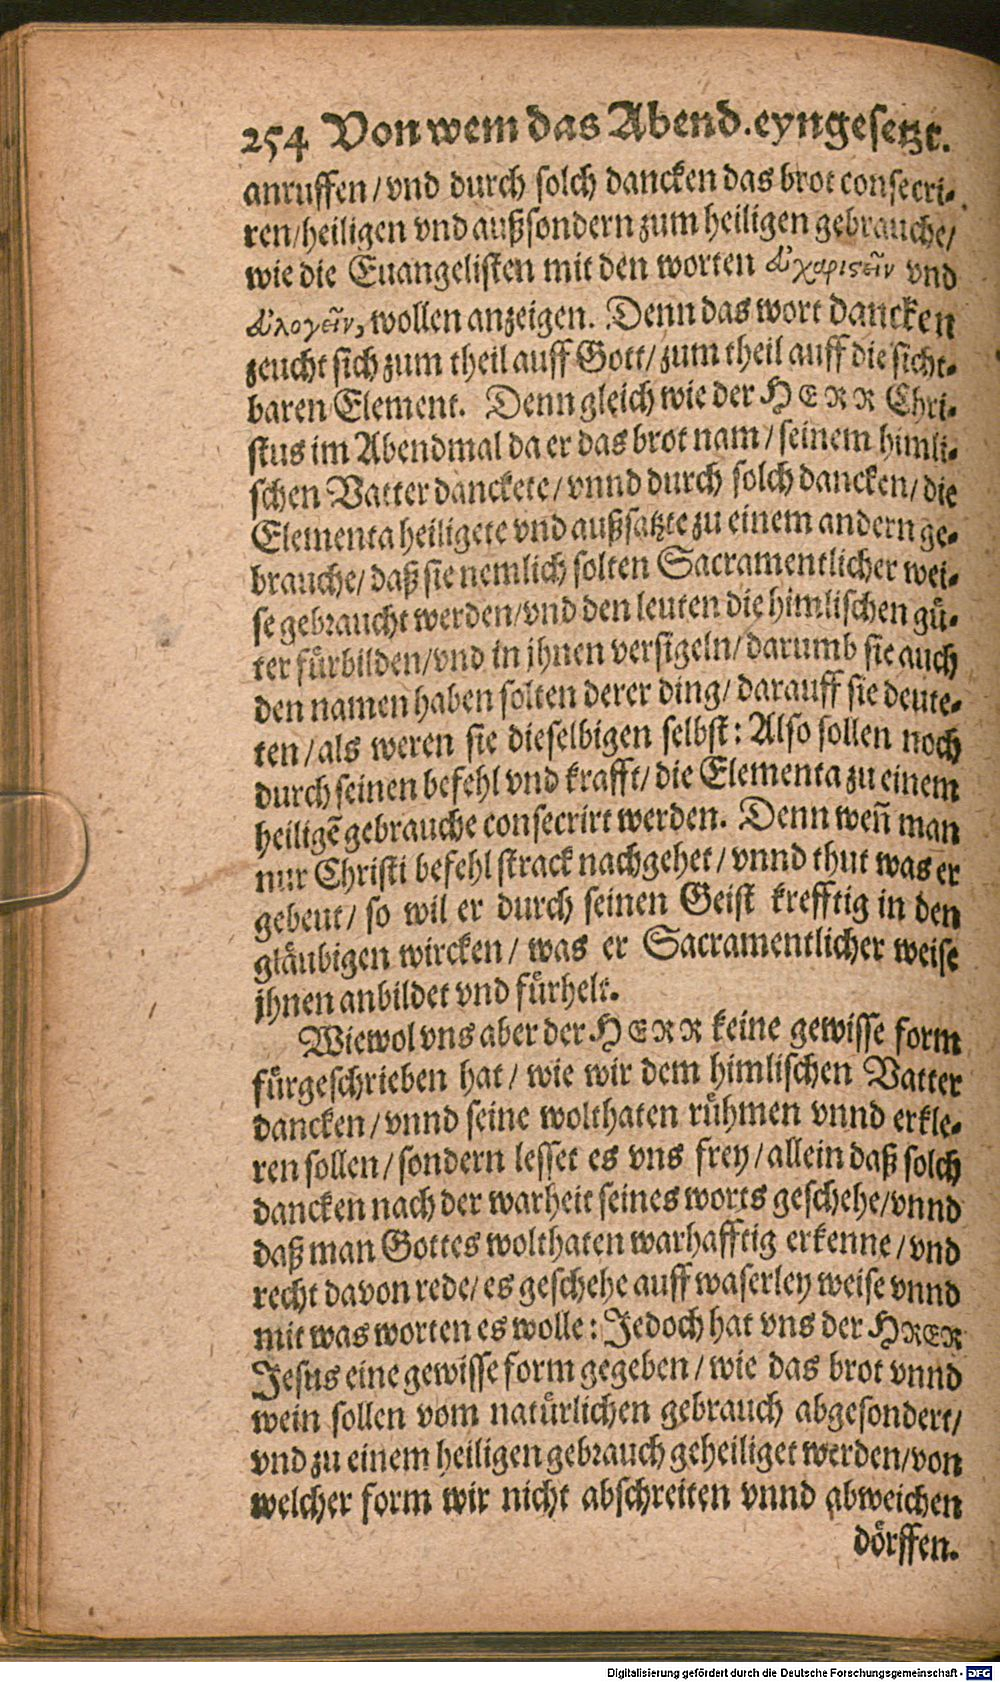 254 Von wem das Abend. eyngesetzt.
anruffen / vnd durch solch dancken das brot consecri-
ren / heiligen vnd außsondern zum heiligen gebrauche /
wie die Euangelisten mit den worten εὐχαριστεῖν vnd
εὐλογεῖν, wollen anzeigen. Denn das wort dancken
zeucht sich zum theil auff Gott / zum theil auff die sicht-
baren Element. Denn gleich wie der HERR Chri-
stus im Abendmal da er das brot nam / seinem himli-
schen Vatter danckete / vnnd durch solch dancken / die
Elementa heiligete vnd außsatzte zu einem andern ge-
brauche / daß sie nemlich solten Sacramentlicher wei-
se gebraucht werden / vnd den leuten die himlischen guͤ-
ter fuͤrbilden / vnd in jhnen versigeln / darumb sie auch
den namen haben solten derer ding / darauff sie deute-
ten / als weren sie dieselbigen selbst : Also sollen noch
durch seinen befehl vnd krafft / die Elementa zu einem
heiligẽ gebrauche consecrirt werden. Denn weñ man
nur Christi befehl strack nachgehet / vnnd thut was er
gebeut / so wil er durch seinen Geist krefftig in den
glaͤubigen wircken / was er Sacramentlicher weise
jhnen anbildet vnd fuͤrhelt.
Wiewol vns aber der HERR keine gewisse form
fuͤrgeschrieben hat / wie wir dem himlischen Vatter
dancken / vnnd seine wolthaten ruͤhmen vnnd erkle-
ren sollen / sondern lesset es vns frey / allein daß solch
dancken nach der warheit seines worts geschehe / vnnd
daß man Gottes wolthaten warhafftig erkenne / vnd
recht davon rede / es geschehe auff waserley weise vnnd
mit was worten es wolle : Jedoch hat vns der HRER
Jesus eine gewisse form gegeben / wie das brot vnnd
wein sollen vom natuͤrlichen gebrauch abgesondert /
vnd zu einem heiligen gebrauch geheiliget werden / von
welcher form wir nicht abschreiten vnnd abweichen
doͤrffen.
Digitalisierung gefördert durch die Deutsche Forschungsgemeinschaft - DFG